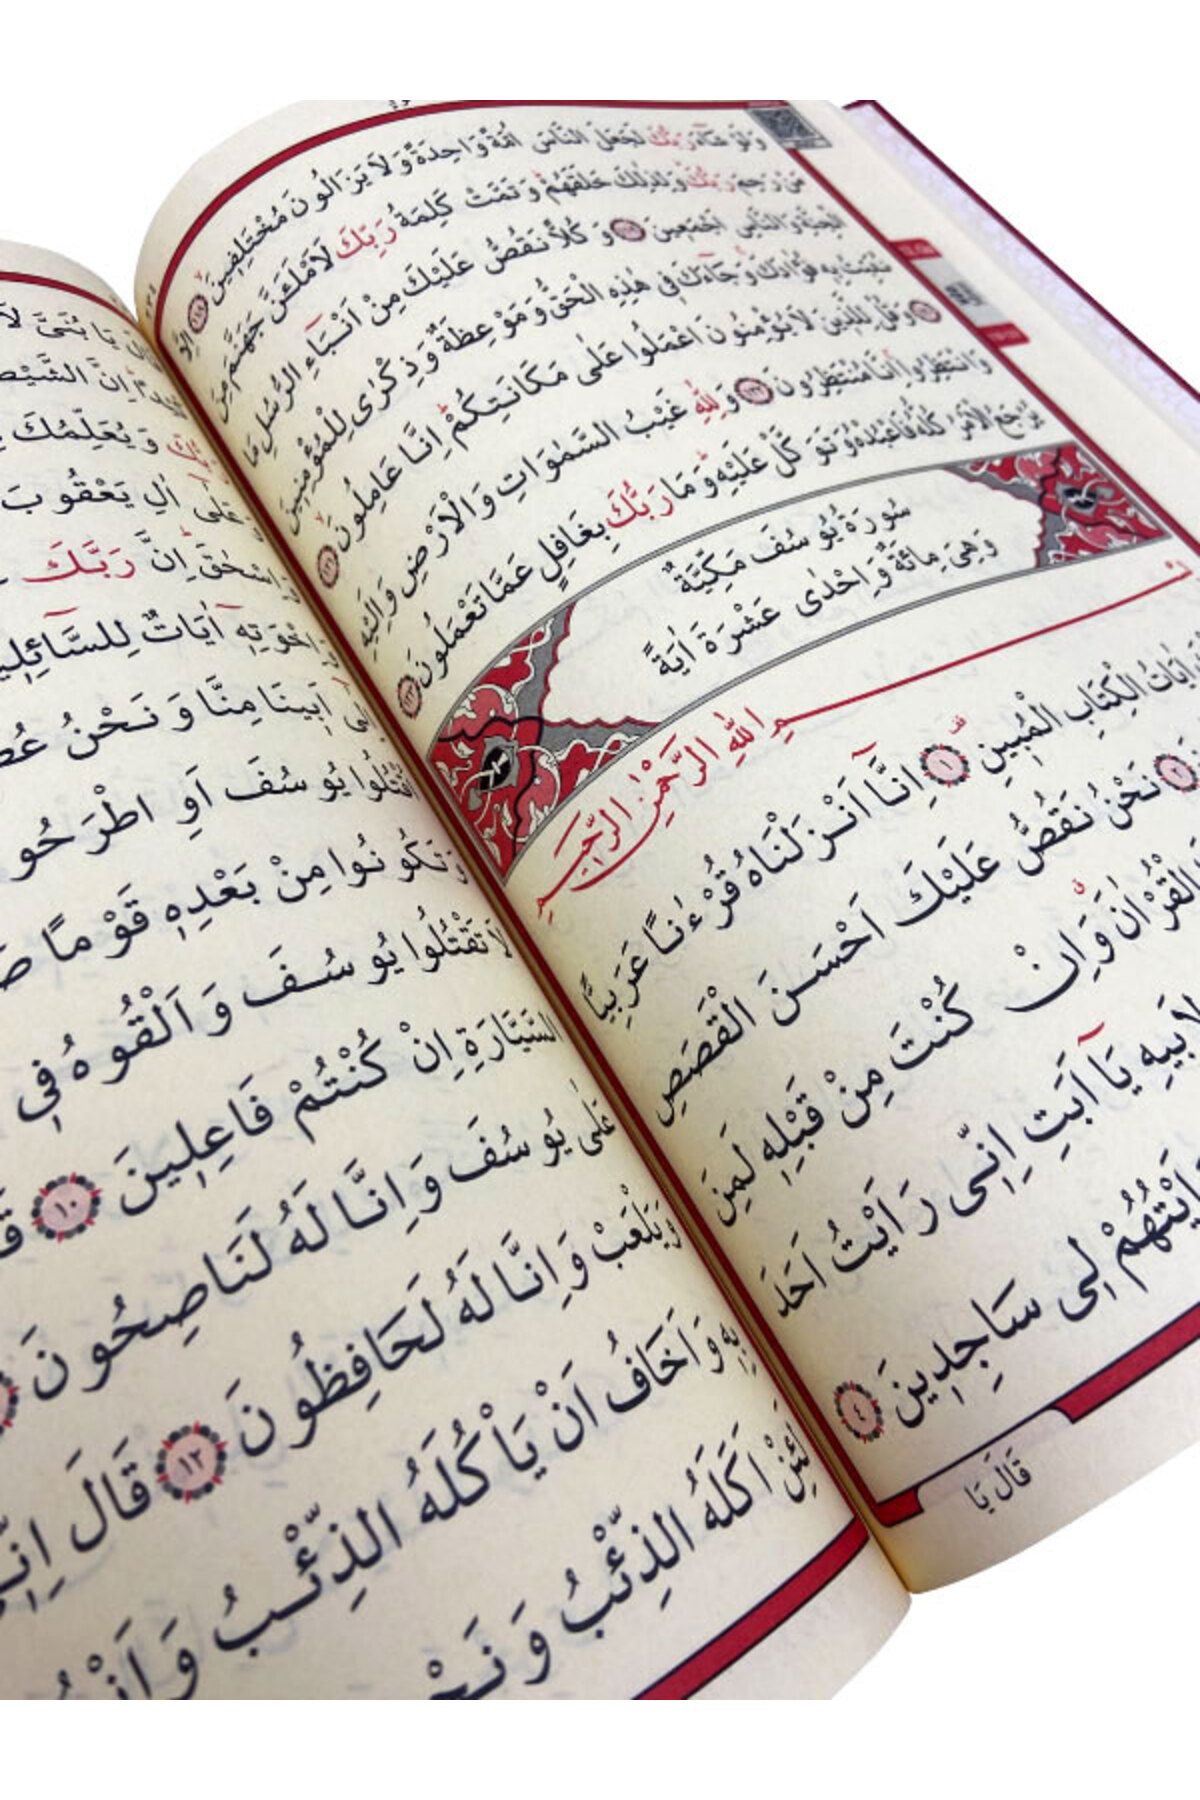 وَلَوْ شَٓاءَ رَبُّكَ لَجَعَلَ النَّاسَ اُمَّةً وَاحِدَةً وَلَا يَزَالُونَ مُخْتَلِفِينَۙ ﴿١١٨﴾ اِلَّا
مَنْ رَحِمَ رَبُّكَۜ وَلِذٰلِكَ خَلَقَهُمْۜ وَتَمَّتْ كَلِمَةُ رَبِّكَ لَاَمْلَـَٔنَّ جَهَنَّمَ مِنَ
الْجِنَّةِ وَالنَّاسِ اَجْمَعِينَ ﴿١١٩﴾ وَكُلًّا نَقُصُّ عَلَيْكَ مِنْ اَنْبَٓاءِ الرُّسُلِ مَا
نُثَبِّتُ بِهِ فُؤٰادَكَۚ وَجَٓاءَكَ فِي هٰذِهِ الْحَقُّ وَمَوْعِظَةٌ وَذِكْرٰى لِلْمُؤْمِنِينَ
﴿١٢٠﴾ وَقُلْ لِلَّذِينَ لَا يُؤْمِنُونَ اعْمَلُوا عَلٰى مَكَانَتِكُمْۜ اِنَّا عَامِلُونَۙ ﴿١٢١﴾
وَانْتَظِرُواۚ اِنَّا مُنْتَظِرُونَ ﴿١٢٢﴾ وَلِلّٰهِ غَيْبُ السَّمٰوَاتِ وَالْاَرْضِ وَاِلَيْهِ
يُرْجَعُ الْاَمْرُ كُلُّهُ فَاعْبُدْهُ وَتَوَكَّلْ عَلَيْهِۜ وَمَا رَبُّكَ بِغَافِلٍ عَمَّا تَعْمَلُونَ ﴿١٢٣﴾
سُورَةُ يُوسُفَ مَكِّيَّةٌ
وَهِيَ مِائَةٌ وَاِحْدٰى عَشْرَةَ اٰيَةً
اللّٰهِ الرَّحْمٰنِ الرَّحِيمِ
اٰيَاتُ الْكِتَابِ الْمُبِينِ ﴿١﴾ اِنَّٓا اَنْزَلْنَاهُ قُرْءٰنًا عَرَبِيًّا
﴿٢﴾ نَحْنُ نَقُصُّ عَلَيْكَ اَحْسَنَ الْقَصَصِ
الْقُرْاٰنَۗ وَاِنْ كُنْتَ مِنْ قَبْلِهِ لَمِنَ
لِاَبِيهِ يَٓا اَبَتِ اِنِّي رَاَيْتُ اَحَدَ
رَاَيْتُهُمْ لِي سَاجِدِينَ ﴿٤﴾
قَالَ يَا
يَا بُنَيَّ لَا
اِنَّ الشَّيْطَ
رَبُّكَ وَيُعَلِّمُكَ
وَعَلٰٓى اٰلِ يَعْقُوبَ
وَاِسْحٰقَۜ اِنَّ رَبَّكَ
وَاِخْوَتِهِٓ اٰيَاتٌ لِلسَّٓائِلِينَ
اَبِينَا مِنَّا وَنَحْنُ عُصْ
اُقْتُلُوا يُوسُفَ اَوِ اطْرَحُو
وَتَكُونُوا مِنْ بَعْدِهِ قَوْمًا صَ
لَا تَقْتُلُوا يُوسُفَ وَاَلْقُوهُ فِي
السَّيَّارَةِ اِنْ كُنْتُمْ فَاعِلِينَ ﴿١٠﴾ قَ
عَلٰى يُوسُفَ وَاِنَّا لَهُ لَنَاصِحُونَ
وَيَلْعَبْ وَاِنَّا لَهُ لَحَافِظُونَ ﴿١٢﴾ قَالَ اِنِّ
بِهِ وَاَخَافُ اَنْ يَأْكُلَهُ الذِّئْبُ وَاَنْتُ
لَئِنْ اَكَلَهُ الذِّئْبُ وَنَحْ